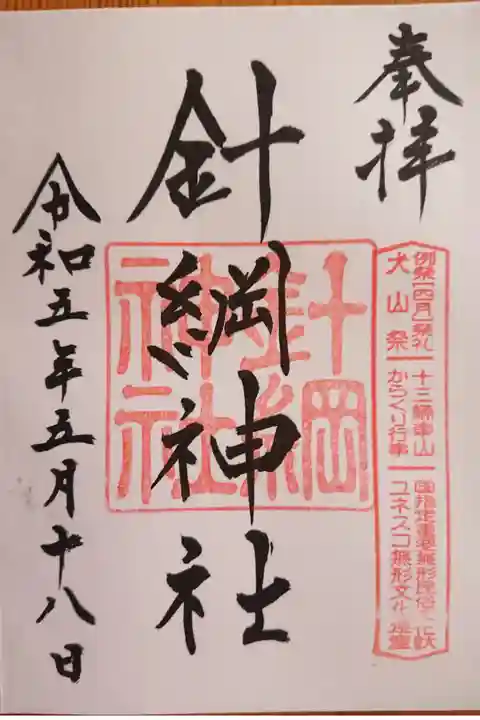 奉拝
例祭(四月)祭礼 十三輌車山 国指定重要無形民俗文化財
犬山祭 からくり行事 ユネスコ無形文化遺産
針綱神社
針綱神社
令和五年五月十八日